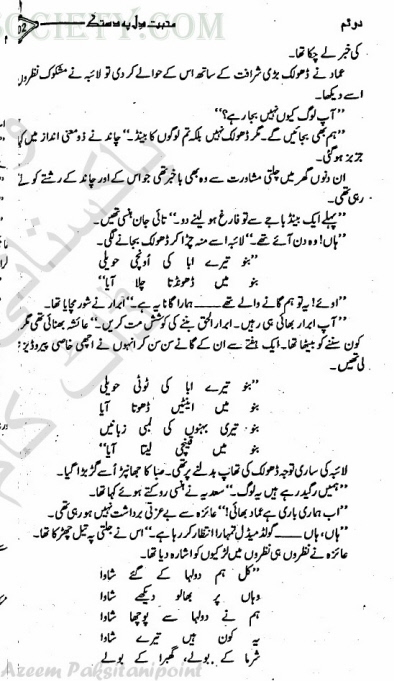 SOCIETY.COM
محبت دل پہ دستک
دوئم
کی خبر لے چکا تھا۔
عماد نے ڈھولک بڑی شرافت کے ساتھ اس کے حوالے کر دی تو لائبہ نے مشکوک نظروں
اسے دیکھا۔
’’آپ لوگ کیوں نہیں بجا رہے؟‘‘
’’ہم بھی بجائیں گے۔ مگر ڈھولک نہیں بلکہ تم لوگوں کا بینڈ۔‘‘ چاند نے ذومعنی انداز میں کہا
جزبز ہو گئی۔
ان دنوں گھر میں چلتی مشاورت سے وہ بھی باخبر تھی جو اس کے اور چاند کے رشتے کو لے
رہی تھی۔
’’پہلے ایک بینڈ باجے سے تو فارغ ہو لینے دو۔‘‘ تائی جان ہنسی تھیں۔
’’ہاں! وہ دن آئے تھے۔‘‘ لائبہ اسے منہ چڑا کر ڈھولک بجانے لگی۔
’’بنو تیرے ابا کی اونچی حویلی
بنو میں ڈھونڈتا چلا آیا‘‘
’’اوئے! یہ تو ہم گانے والے تھے ــــ ہمارا گانا ہے یہ۔‘‘ ابرار نے شور مچایا تھا۔
’’آپ ابرار بھائی ہی رہیں۔ ابرار الحق بننے کی کوشش مت کریں۔‘‘ عائشہ بھنائی تھی مگر
کون سننے کو بیٹھا تھا۔ ایک ہفتے سے ان کے گانے سن سن کر انہوں نے اچھی خاصی پیروڈیز
لی تھیں۔
’’بنو تیرے ابا کی ٹوٹی حویلی
بنو میں اینٹیں ڈھوتا آیا
بنو تیری بہنوں کی لمبی زبانیں
بنو میں قینچی لیتا آیا‘‘
لائبہ کی ساری توجہ ڈھولک کی تھاپ بدلنے پر تھی۔ صبا کا جھانپڑ اُسے گڑبڑا گیا۔
’’ہمیں رگید رہے ہیں یہ لوگ۔‘‘ سعدیہ نے ہنسی روکتے ہوئے کہا تھا۔
’’اب ہماری باری ہے عماد بھائی!‘‘ عائزہ سے بے عزتی برداشت نہیں ہو رہی تھی۔
’’ہاں، ہاں ــــ گولڈ میڈل تمہارا انتظار کر رہا ہے۔‘‘ اس نے جلتی پہ تیل چھڑکا تھا۔
عائزہ نے نظروں ہی نظروں میں لڑکیوں کو اشارہ دیا تھا۔
’’کل ہم دولہا کے گئے شاوا
وہاں پر بھالو دیکھے شاوا
ہم نے دولہا سے پوچھا شاوا
یہ کون ہیں تیرے شاوا
شرما کے بولے، گھبرا کے بولے
Azeem Paksitanipoint